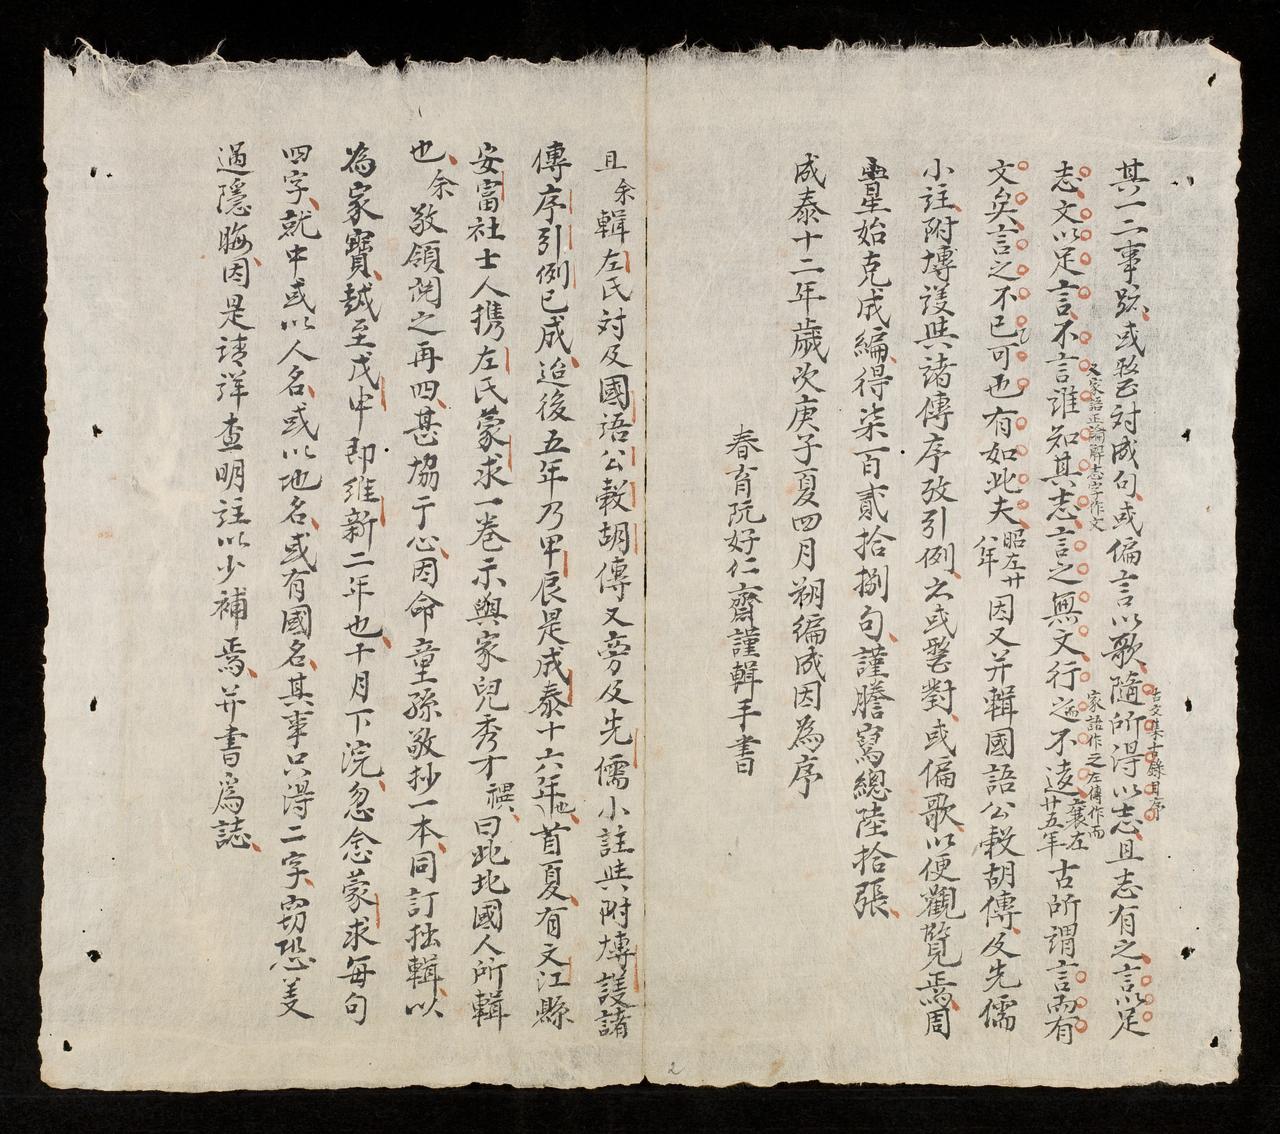 其一二事跡或整対成句或偏言以歌隨所得以志且志有之言以足
古文集古錄目序
志文以足言不言誰知其志言之無文行之不遠襄左廿五年古所謂言而有
又家語正論解志字作文
家語作之左傳作而
文矣言之不已可也有如此夫昭左廿八年因又并輯國語公穀胡傳及先儒
小註附摶謢與諸傳序攷引例之或整對或偏歌以便觀覽焉周
星始克成編得柒百貳拾捌句謹謄寫總陸拾張
成泰十二年歲次庚子夏四月朔編成因為序
春育阮好仁齋謹輯手書
且余輯左氏対及國语公穀胡傳又旁及先儒小註與附摶謢諸
傳序引例已成迨後五年乃甲辰是成泰十六年也首夏有文江縣
安富社士人携左氏蒙求一巻示與家兒秀才禩曰此北國人所輯
也余敬領閲之再四甚協于心因命童孫敬抄一本同訂拙輯以
為家寶越至戊申即維新二年也十月下浣忽念蒙求每句
四字就中或以人名或以地名或有國名其事只得二字窃恐羙
過隱晦因是请详查明註以少補焉并書爲誌
2